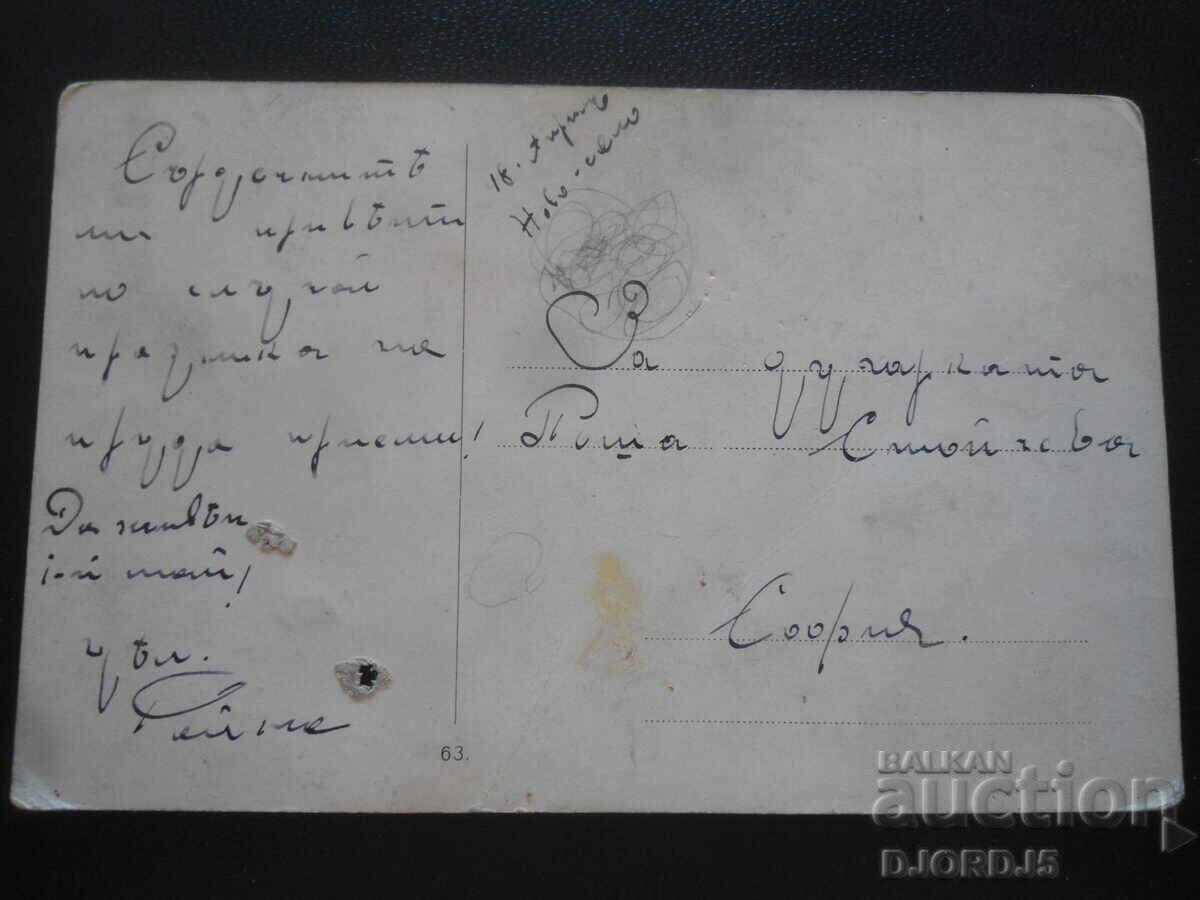 Сърдечнитѣ
ми привѣти
по случай
празника на
труда приеми!
Да живѣй
1-й май!
Цѣл.
Райна
18. Априлъ
Ново-село
За другарката
Стойчева
София.
63.
BALKAN
auction
DJORDJ5